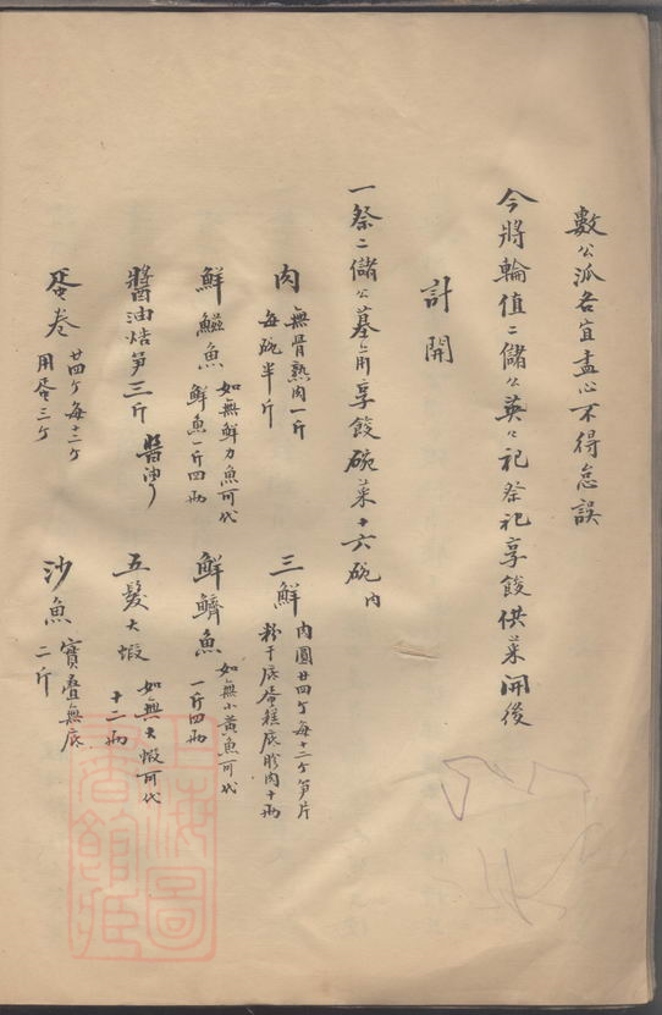 數公派各宜盡心不得怠誤
今將輪值二儲公英公祀祭祀享餕供菜開後
計開
一祭二儲公墓前享餕碗菜十六碗內
肉 無骨熟肉一斤
每碗半斤
三鮮 肉圓廿四个每十二个笋片
粉干底蛋糕底胗肉十兩
鮮鰳魚 如無鮮力魚可代
鮮魚一斤四兩
鮮鱭魚 如無小黃魚可代
一斤四兩
醬油焅笋三斤 醬油
五鬚大蝦 如無大蝦可代
十二兩
蛋卷 廿四个每十二个
用蛋三个
沙魚 實叠無底
二斤
上海圖書館藏